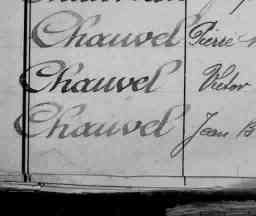 Chauvel Pierre
Chauvel Victor
Chauvel Jean B